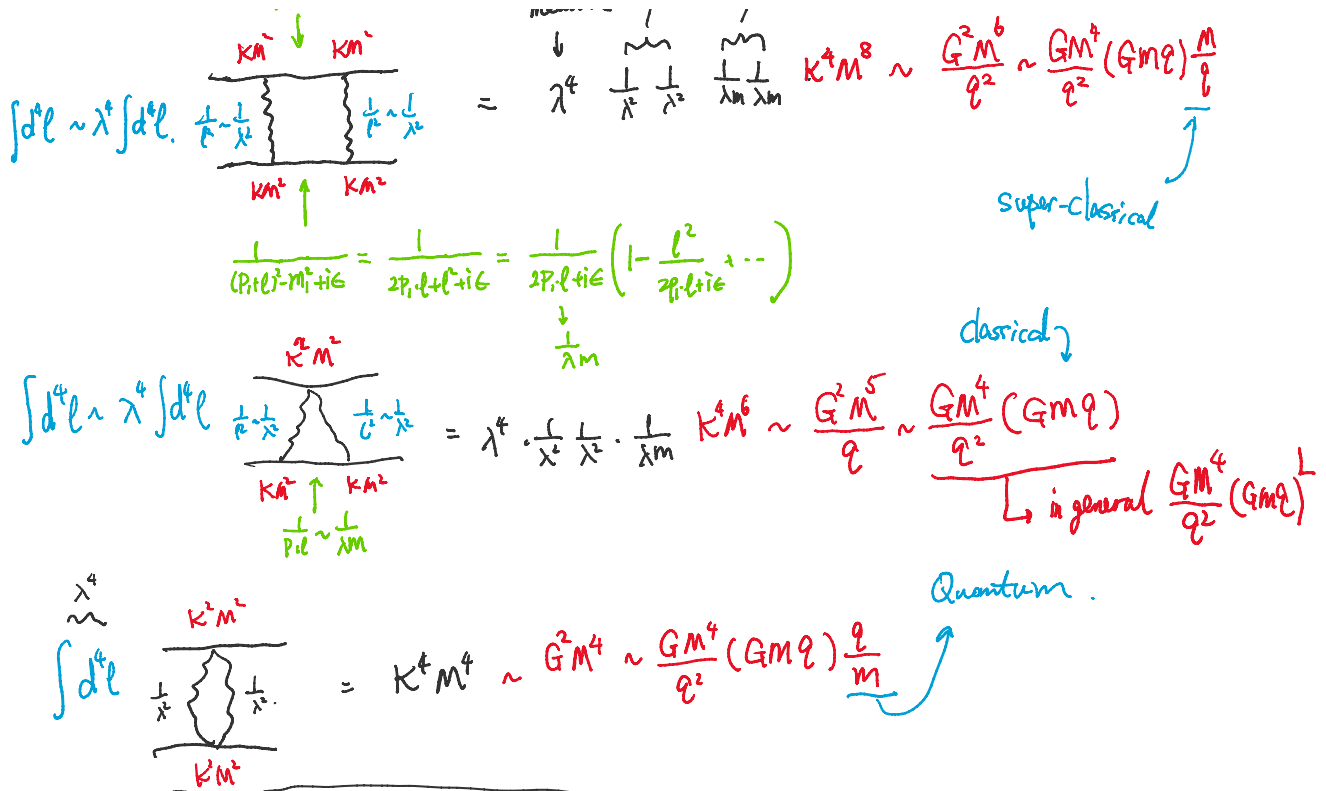 κm² κm²
∫d⁴ℓ ~ λ⁴∫d⁴ℓ. 1/ℓ² ~ 1/λ² 1/ℓ² ~ 1/λ² = λ⁴ 1/λ² 1/λ² 1/λm 1/λm κ⁴M⁸ ~ G²M⁶/q² ~ GM⁴/q² (Gmq) m/q
κm² κm²
super-classical
1/((p₁+ℓ)²-m₁²+iε) = 1/(2p₁·ℓ+ℓ²+iε) = 1/(2p₁·ℓ+iε) (1 - ℓ²/(2p₁·ℓ+iε) + ···)
1/λm
classical
κ²M²
∫d⁴ℓ ~ λ⁴∫d⁴ℓ 1/ℓ² ~ 1/λ² 1/ℓ² ~ 1/λ² = λ⁴ · 1/λ² 1/λ² · 1/λm κ⁴M⁶ ~ G²M⁵/q ~ GM⁴/q² (Gmq)
κm² κm²
in general GM⁴/q² (Gmq)^L
1/p₁ℓ ~ 1/λm
λ⁴
Quantum.
κ²M²
∫d⁴ℓ 1/λ² 1/λ². = κ⁴M⁴ ~ G²M⁴ ~ GM⁴/q² (Gmq) q/m
κ²M²